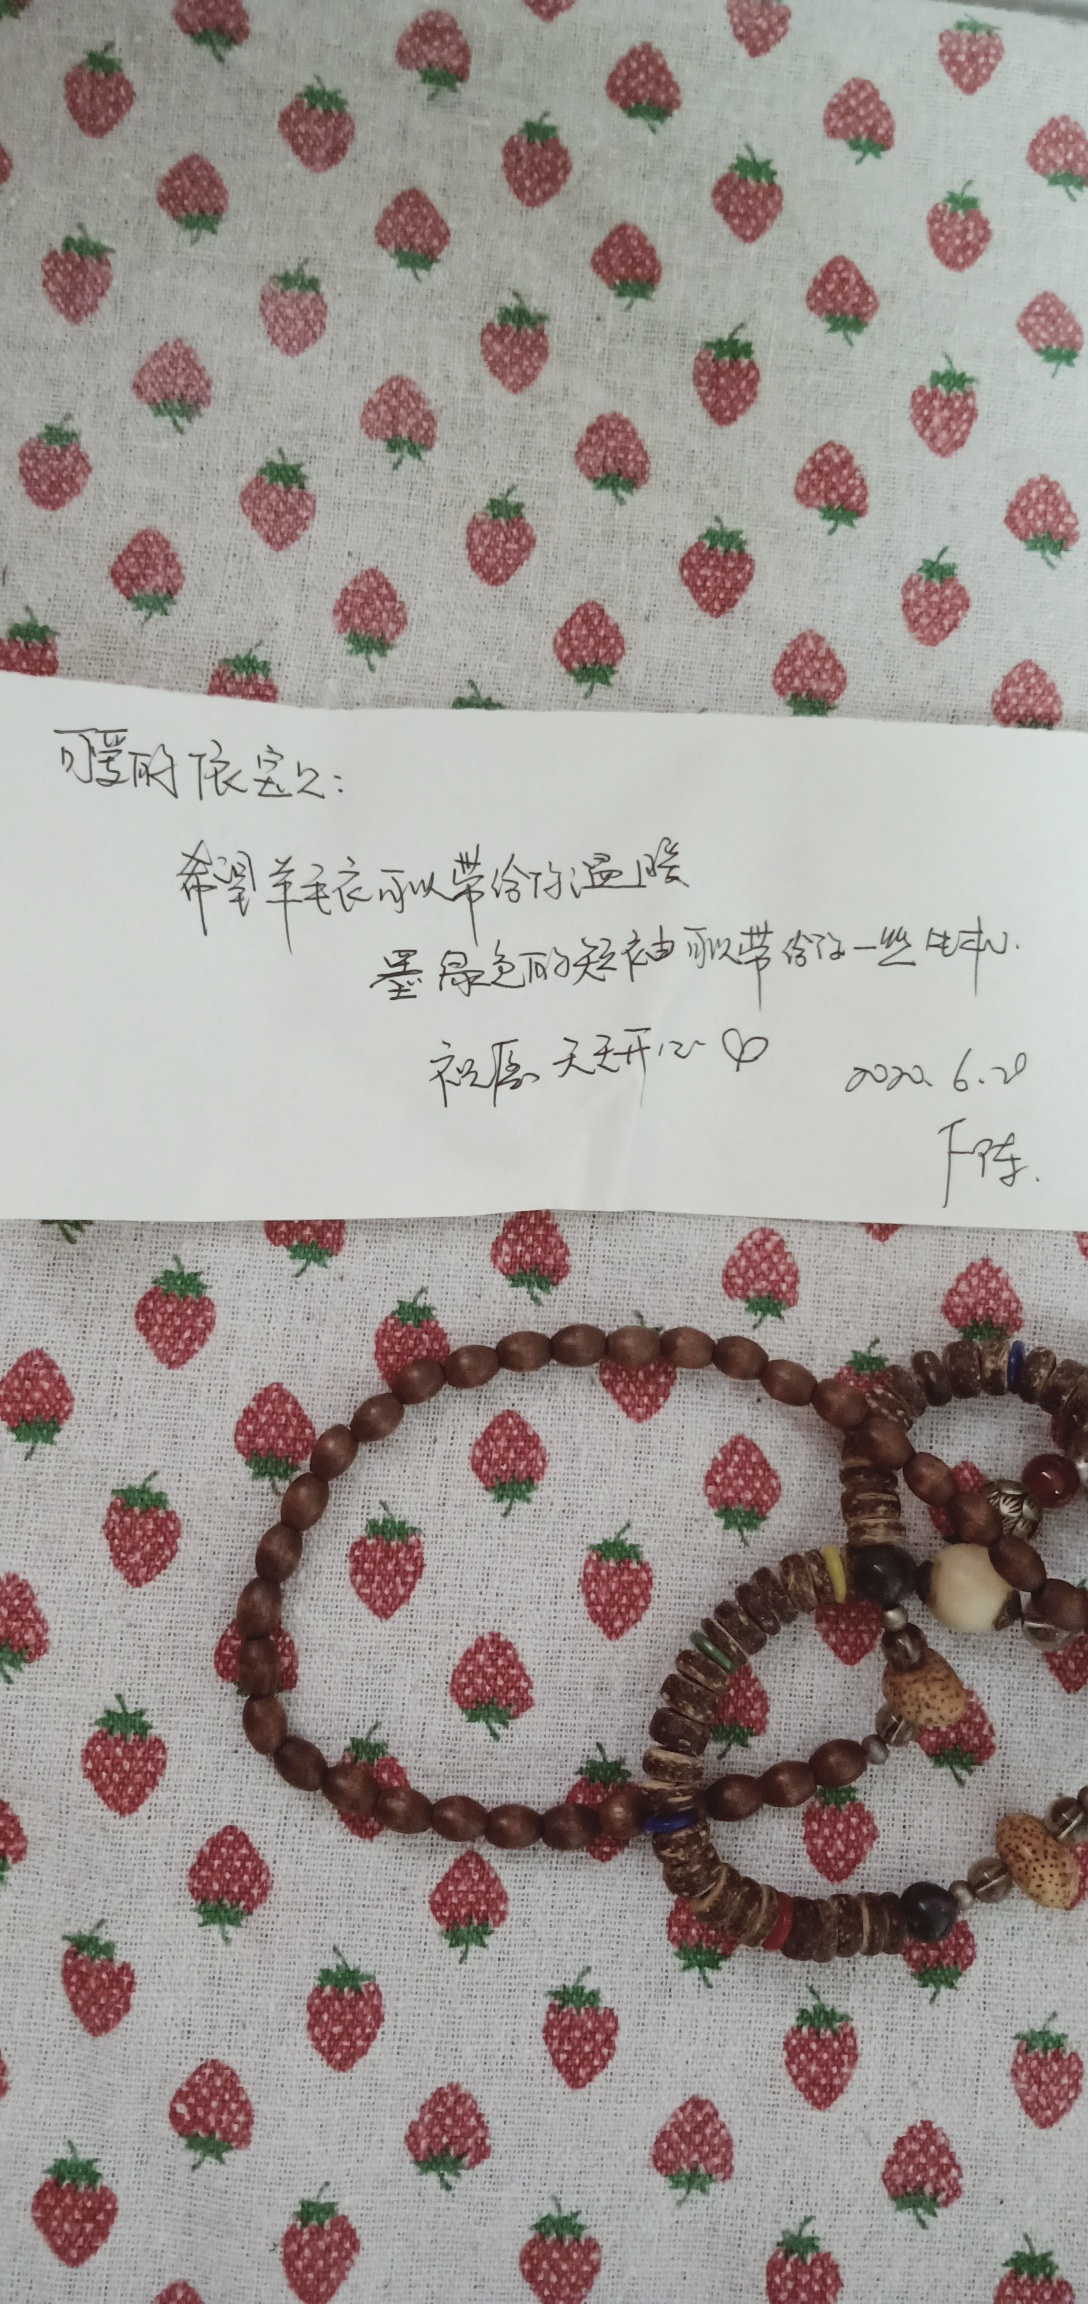 可爱的依定久:
希望羊毛衣可以带给你温暖
墨绿色的短袖可以带给你一些
祝愿天天开心♡
2020.6.20
陈.